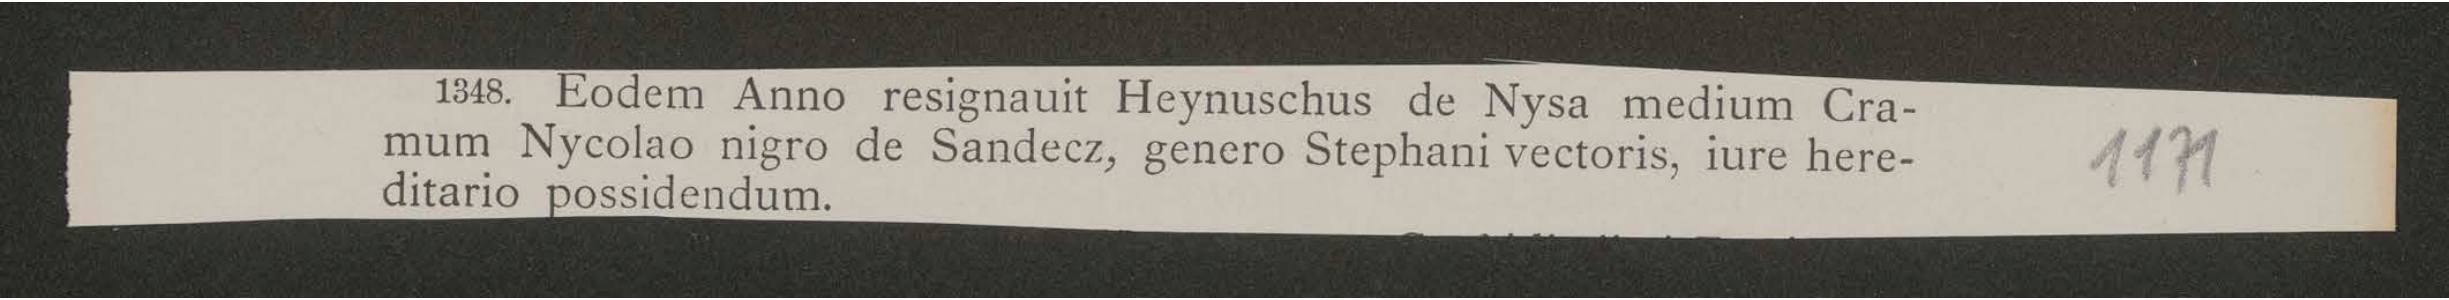 1348. Eodem Anno resignauit Heynuschus de Nysa medium Cra-
mum Nycolao nigro de Sandecz, genero Stephani vectoris, iure here-
ditario possidendum.
1171